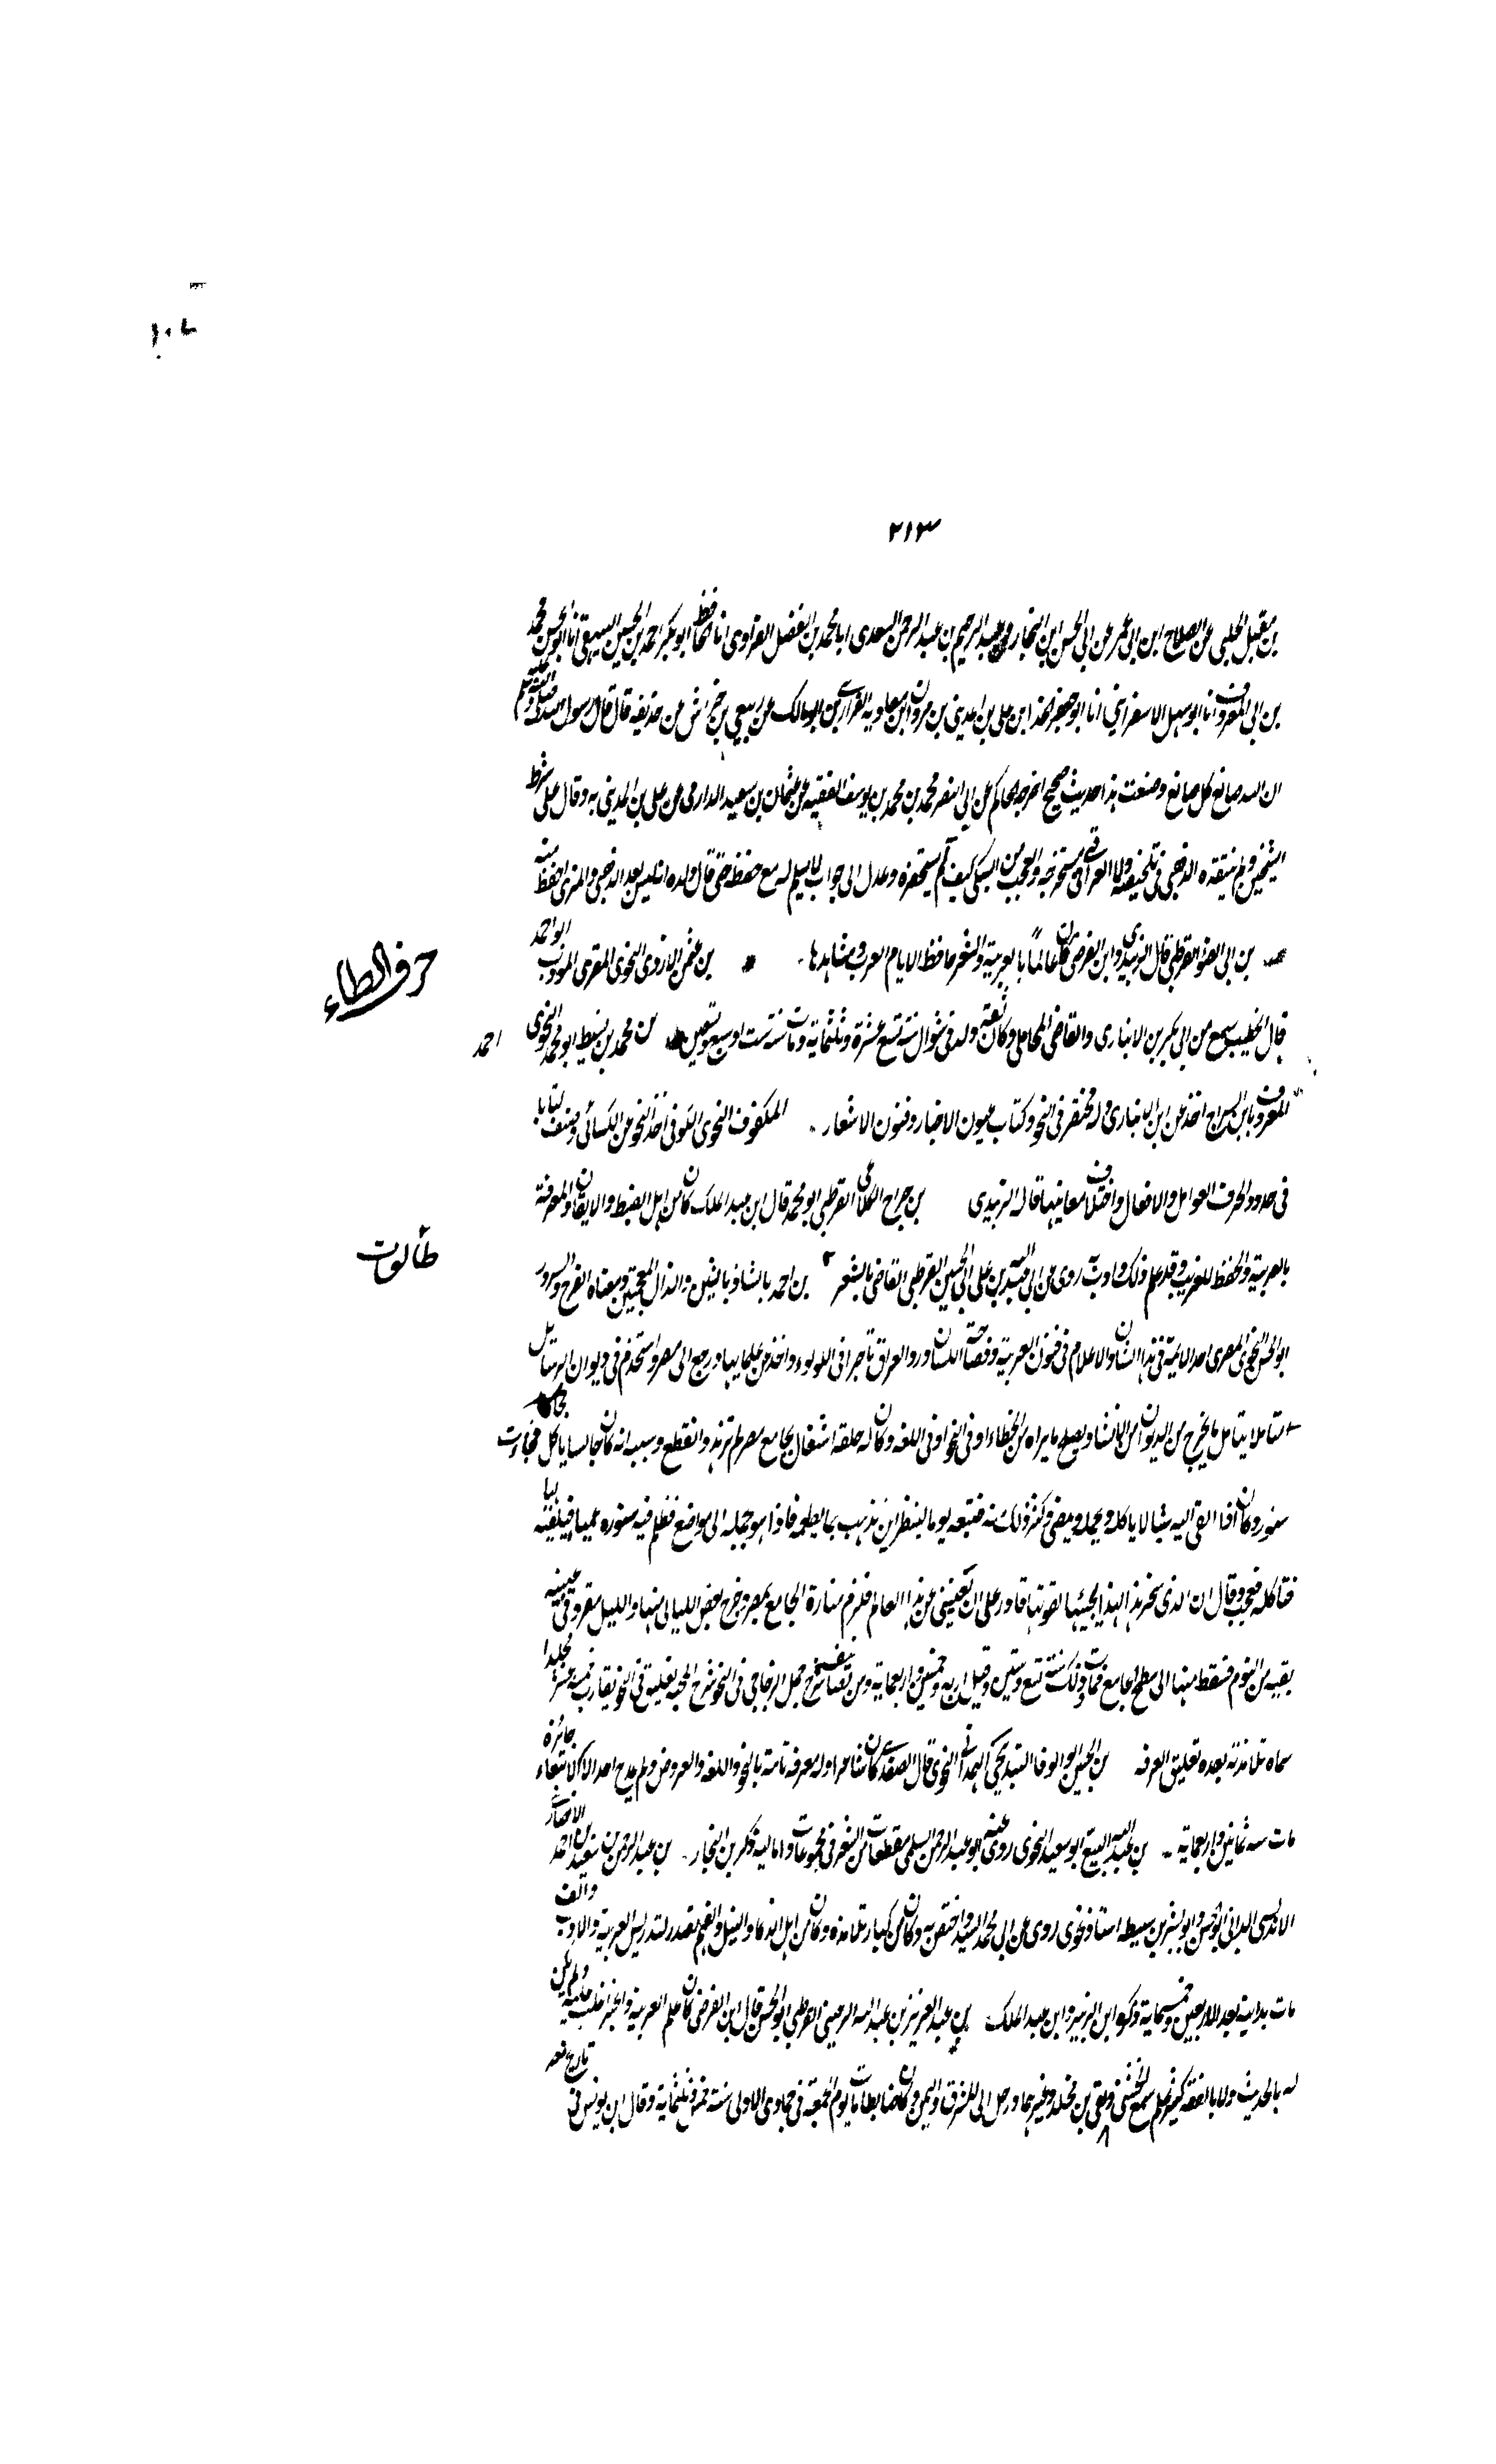 ١٠٧
٢١٣
بن مقبل الحلبي عن الصلاح ابن ابي عمر عن ابي الحسن ابن النجار عن عبد الرحيم بن عبد الرحمن السعدى انا محمد بن الفضل الفراوى انا الحافظ ابو بكر احمد بن الحسين البيهقي انا ابو الحسن محمد
بن ابى المعروف انا ابو سهل الاسفرايني انا ابو جعفر الحذا ابن على بن المدينى بن مروان ابن معاوية الفزارى بن ابو مالك عن ربيعى بن خراش عن حذيفه قال قال رسول الله صلى الله عليه وسلم
ان الله صانع كل صانع وصنعت هذا حديث صحيح اخرجه الحاكم عن ابى النضر محمد بن محمد بن يوسف الفقيه عن عثمان بن سعيد الدارمى عن على بن المدينى به وقال على شرط
الشيخين ولم ينتقده الذهبى فى تلخيصه ولا العراقى فى مستخرجه والعجب من السبكى كيف لم يستحضره وعدل الى جواب لا يسلم له مع حفظه حتى قال ولده انه ليس بعد الذهبى والمزى احفظ منه
بن ابى الصقر القرطبى قال الزبيدى وابن الفرضى كان عالما بالعربية والشعر حافظا لايام العرب ومشاهدها بن عثمن الازدى النحوى المقرى المؤدب ابو احمد
قال الخطيب سمع من ابى بكر بن الانبارى والقاضى المحاملى وكان ثقة ولد فى شوال سنة تسع عشرة وثلثماية ومات سنة ست او سبع وتسعين بن محمد بن نشيط ابو محمد النحوى
المعروف بابن السراج اخذ عن ابن الانبارى وله مختصر فى النحو وكتاب عيون الاخبار وفنون الاشعار المكفوف النحوى الكوفى اخذ النحو عن الكسائى وصنف كتابا
فى حدود الحرف العوامل والافعال واختلاف معانيها قاله الزبيدى بن جراح الكلاعى القرطبى ابو محمد قال ابن عبد الملك كان من اهل الضبط والاتقان والمعرفة
بالعربية والحفظ للغريب وقد علم ذلك وادب روى عن ابى عبد الله بن على ابى الحسين القرطبى القاضى بالشعر بن احمد بابشاذ بالشين والذال المعجمتين ومعناه الفرح والسرور
ابو الحسن النحوى المصرى احد الايمة فى هذا الشان والاعلام فى فنون العربية وفصاحة اللسان ورد العراق تاجرا فى اللولوء واخذ عن علمايها ورجع الى مصر واستخدم فى ديوان الرسايل
متاملا يتامل ما يخرج من الديوان من الانشا ويصلح ما يراه من الخطاء او فى النحو او فى اللغه وكان له حلقه اشغال بجامع مصر ثم تزهد وانقطع وسببه انه كان جالسا ياكل فجاءت
سنور وكان اذا القى اليه شيا لا ياكله ويحمله ويمضى وكثر ذلك منه فتبعه يوما لينظر اين يذهب بما يطعمه فاذا هو يحمله الى مواضع فظلم فيه سنوره عميا فيلقيه لها
فتاكله فتعجب وقال ان الذى سخر هذا لهذا ليجيئها بقوتها قادر على ان يغنينى عن هذا العالم فلزم منارة الجامع بمصر وخرج بعض الليالى منها والليل مقمر وفى عينيه
بقيه من النوم فسقط منها الى سطح الجامع فمات وذلك سنة تسع وستين وقيل اربع وخمسين واربعماية ومن تصانيفه شرح جمل الزجاجى فى النحو شرح المحتسبه تعليق فى النحو يقارب خمسة عشر مجلدا
سماه تلامذته بعده تعليق الغرفه بن الحسين ابو الوفا البندنيجى الهمدانى النحوى قال الصفدى كان شاعرا وله معرفه تامة بالنحو واللغه والعروض ولم يمدح احد الا كان لابتغاء جائزة
مات سنه ثمانين واربعماية بن عبد الله البيع ابو سعيد النحوى روى عنه ابو عبد الرحمن السلمى مقطعات من الشعر فى مجموعات واماليه ذكره ابن النجار بن عبد الرحمن بن سعيد بن احمد الانصارى
الاندلسى الدانى ابو الحسن وابو بشر بن سبيطه استاذ نحوى روى عن ابى محمد السيد واختص به وكان من كبار تلامذه وكان من اهل الذكاء والنبل والفهم تصدر لتدريس العربية والادب والف
مات بدانية بعد الاربعين وخمسماية ذكره ابن الزبير وابن عبد الملك بن عبد العزيز بن عبد الله الرعينى القرطبى ابو الحسن قال ابن الفرضى كان علم العربية والخبر غلب عليه ولم يكن
له بالحديث ولا بالفقه كبير علم سمع الخشنى وبقى بن مخلد وغيرهما ورحل الى المشرق واليمن وكان ضابطا مات يوم الجمعة فى جمادى الاولى سنة خمس وثلثماية وقال ابن يونس فى تاريخ مصر
حرف الطاء
احمد
طالوت